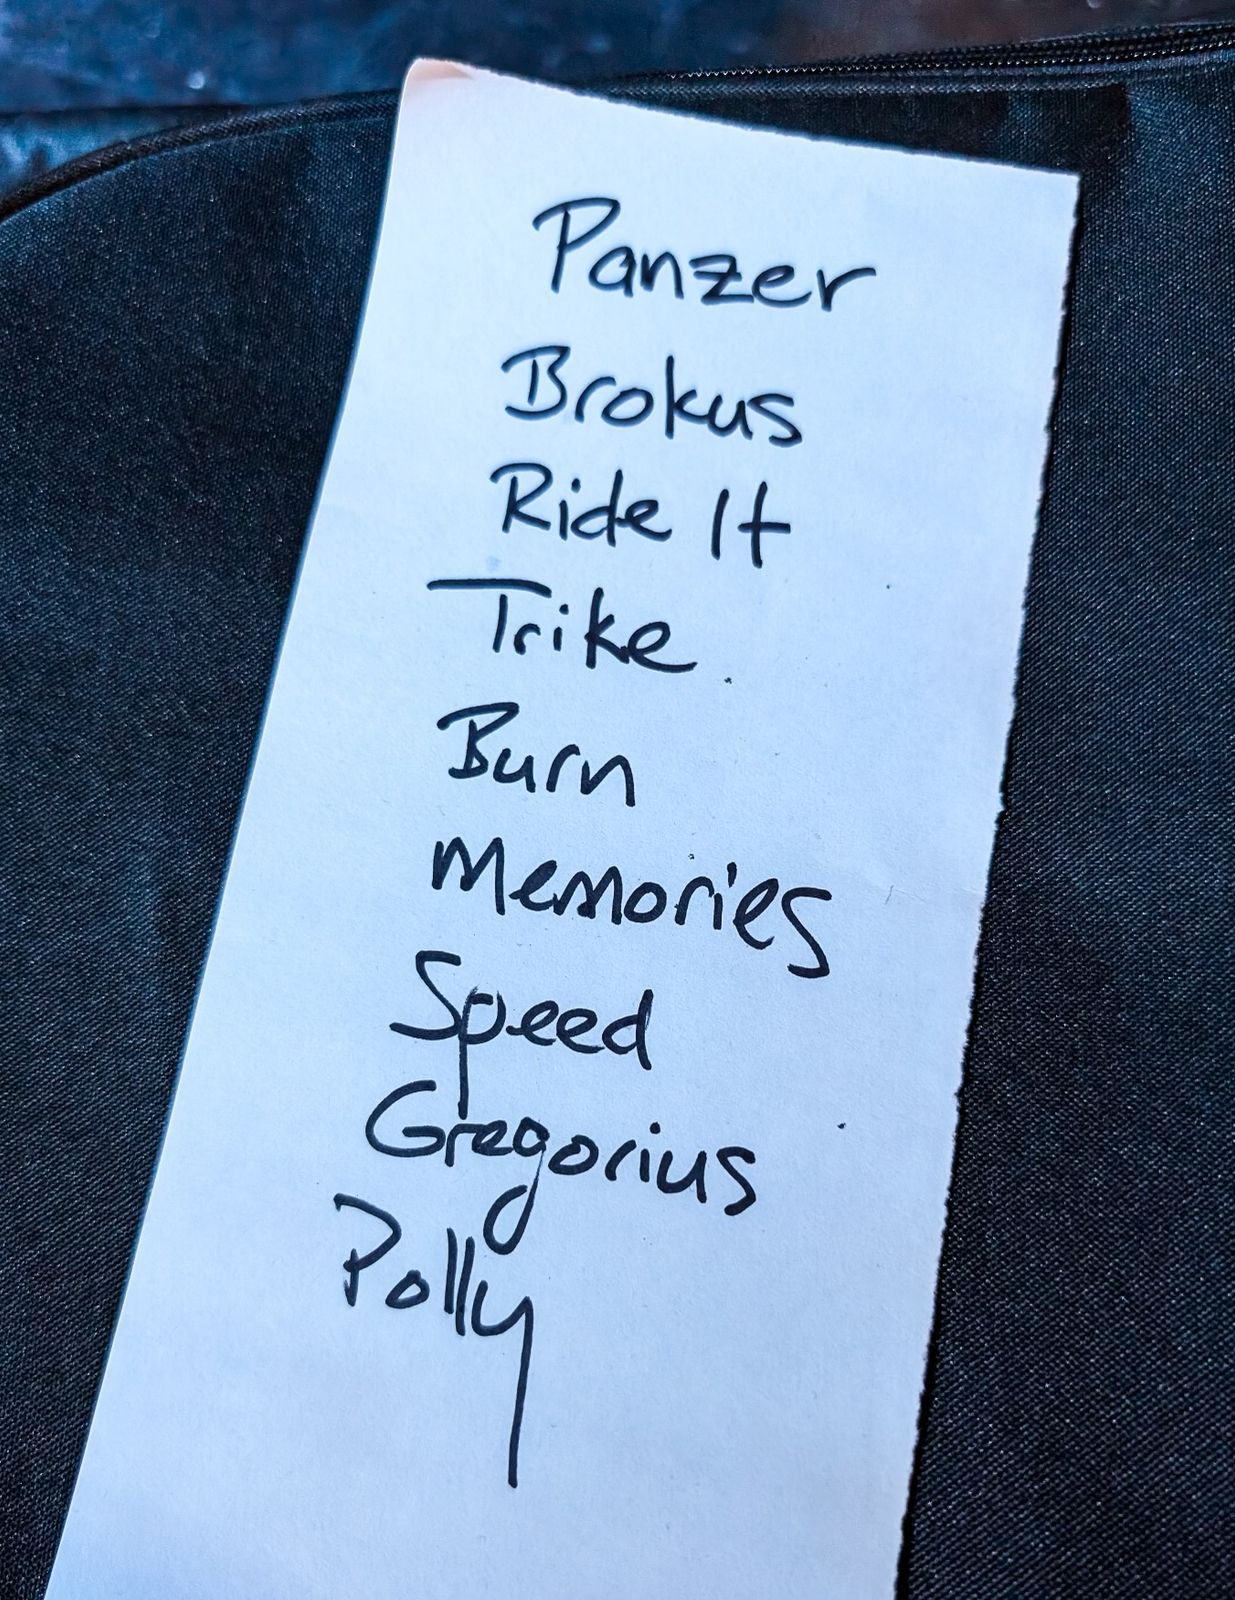 Panzer
Brokus
Ride It
Trike
Burn
Memories
Speed
Gregorius
Polly